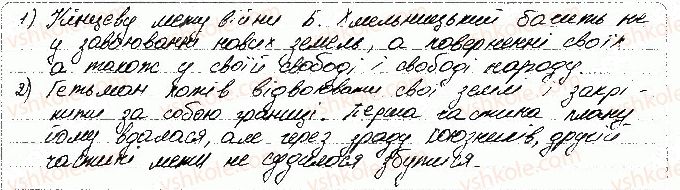 1) Кінцеву мету війни Б. Хмельницький бачить не
у завоюванні нових земель, а поверненні своїх
а також у своїй свободі і свободі народу
2) Гетьман хотів відвоювати свої землі і закрі-
пити за собою границі. Перша частина плану
йому вдалася, але через зраду союзників, другій
частині мети не судилося збутися.